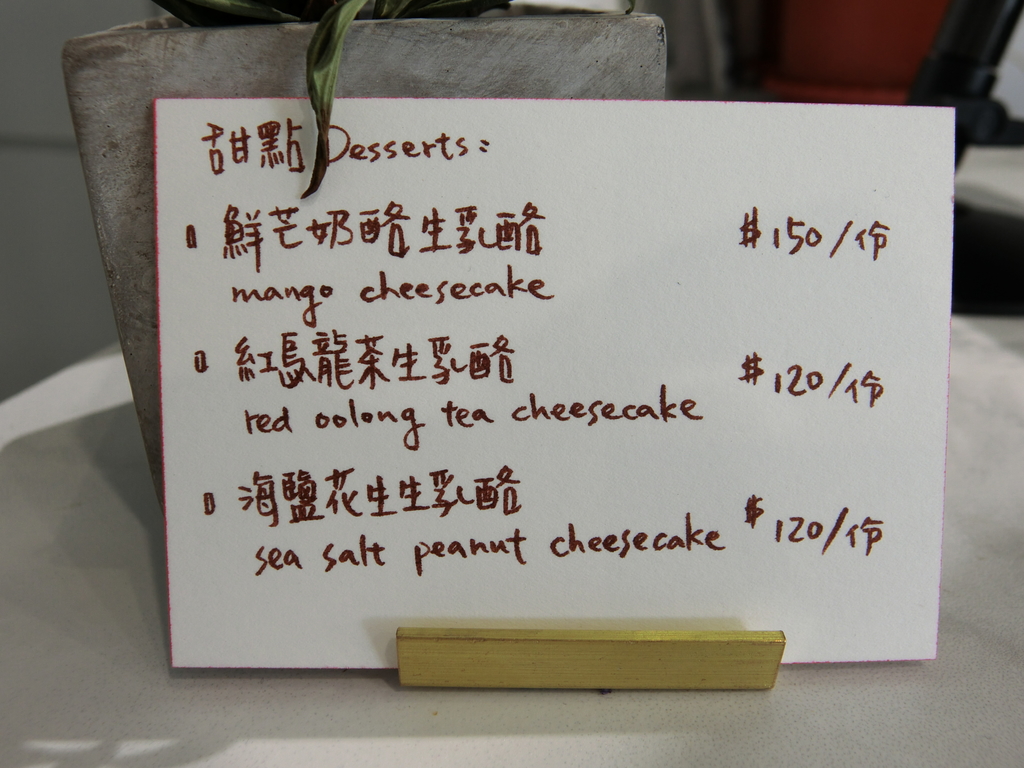 甜點 Desserts:
鮮芒奶酪生乳酪 $150/份
mango cheesecake
紅烏龍茶生乳酪 $120/份
red oolong tea cheesecake
海鹽花生生乳酪 $120/份
sea salt peanut cheesecake